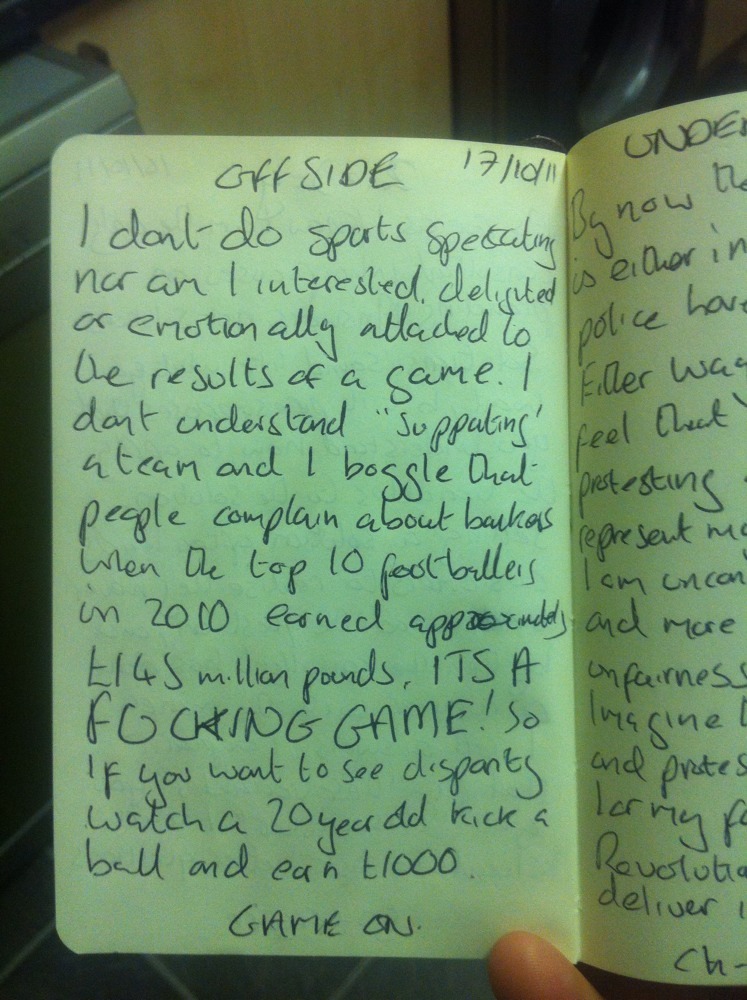 OFFSIDE 17/10/11
I dont do sports spectating
nor am I interested, delighted
or emotionally attached to
the results of a game. I
dont understand "supporting'
a team and I boggle that
people complain about bankers
when the top 10 footballers
in 2010 earned approximately
£145 million pounds. ITS A
FUCKING GAME! So
if you want to see disparity
watch a 20 year old kick a
ball and earn £1000.
GAME ON.
UNDER
By now the
is either in
police have
filler
feel that
protesting
represent
I am
and more
unfairness
Imagine
and protes
for my
Revolutio
deliver i
Ch-